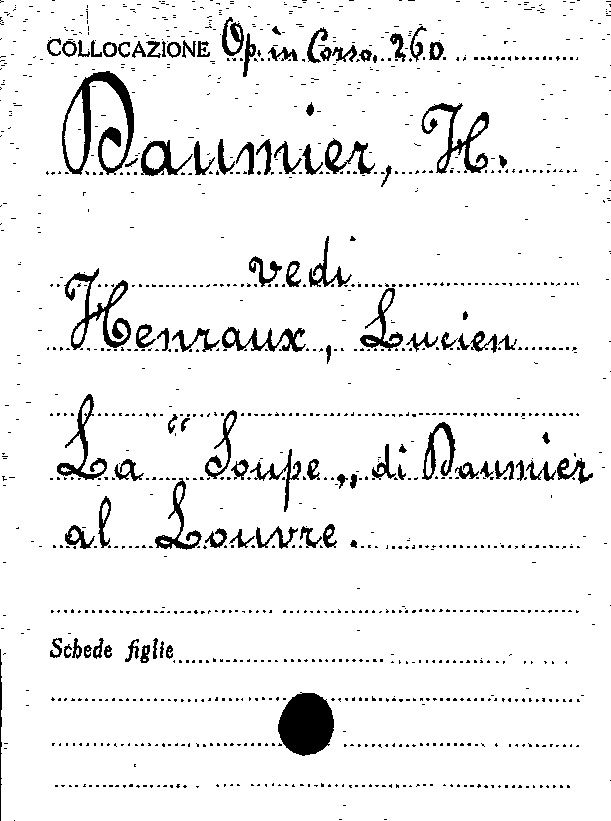 COLLOCAZIONE Op. in Corso. 260
Daumier, H.
vedi
Henraux, Lucien
La “Soupe„ di Daumier
al Louvre.
Schede figlie